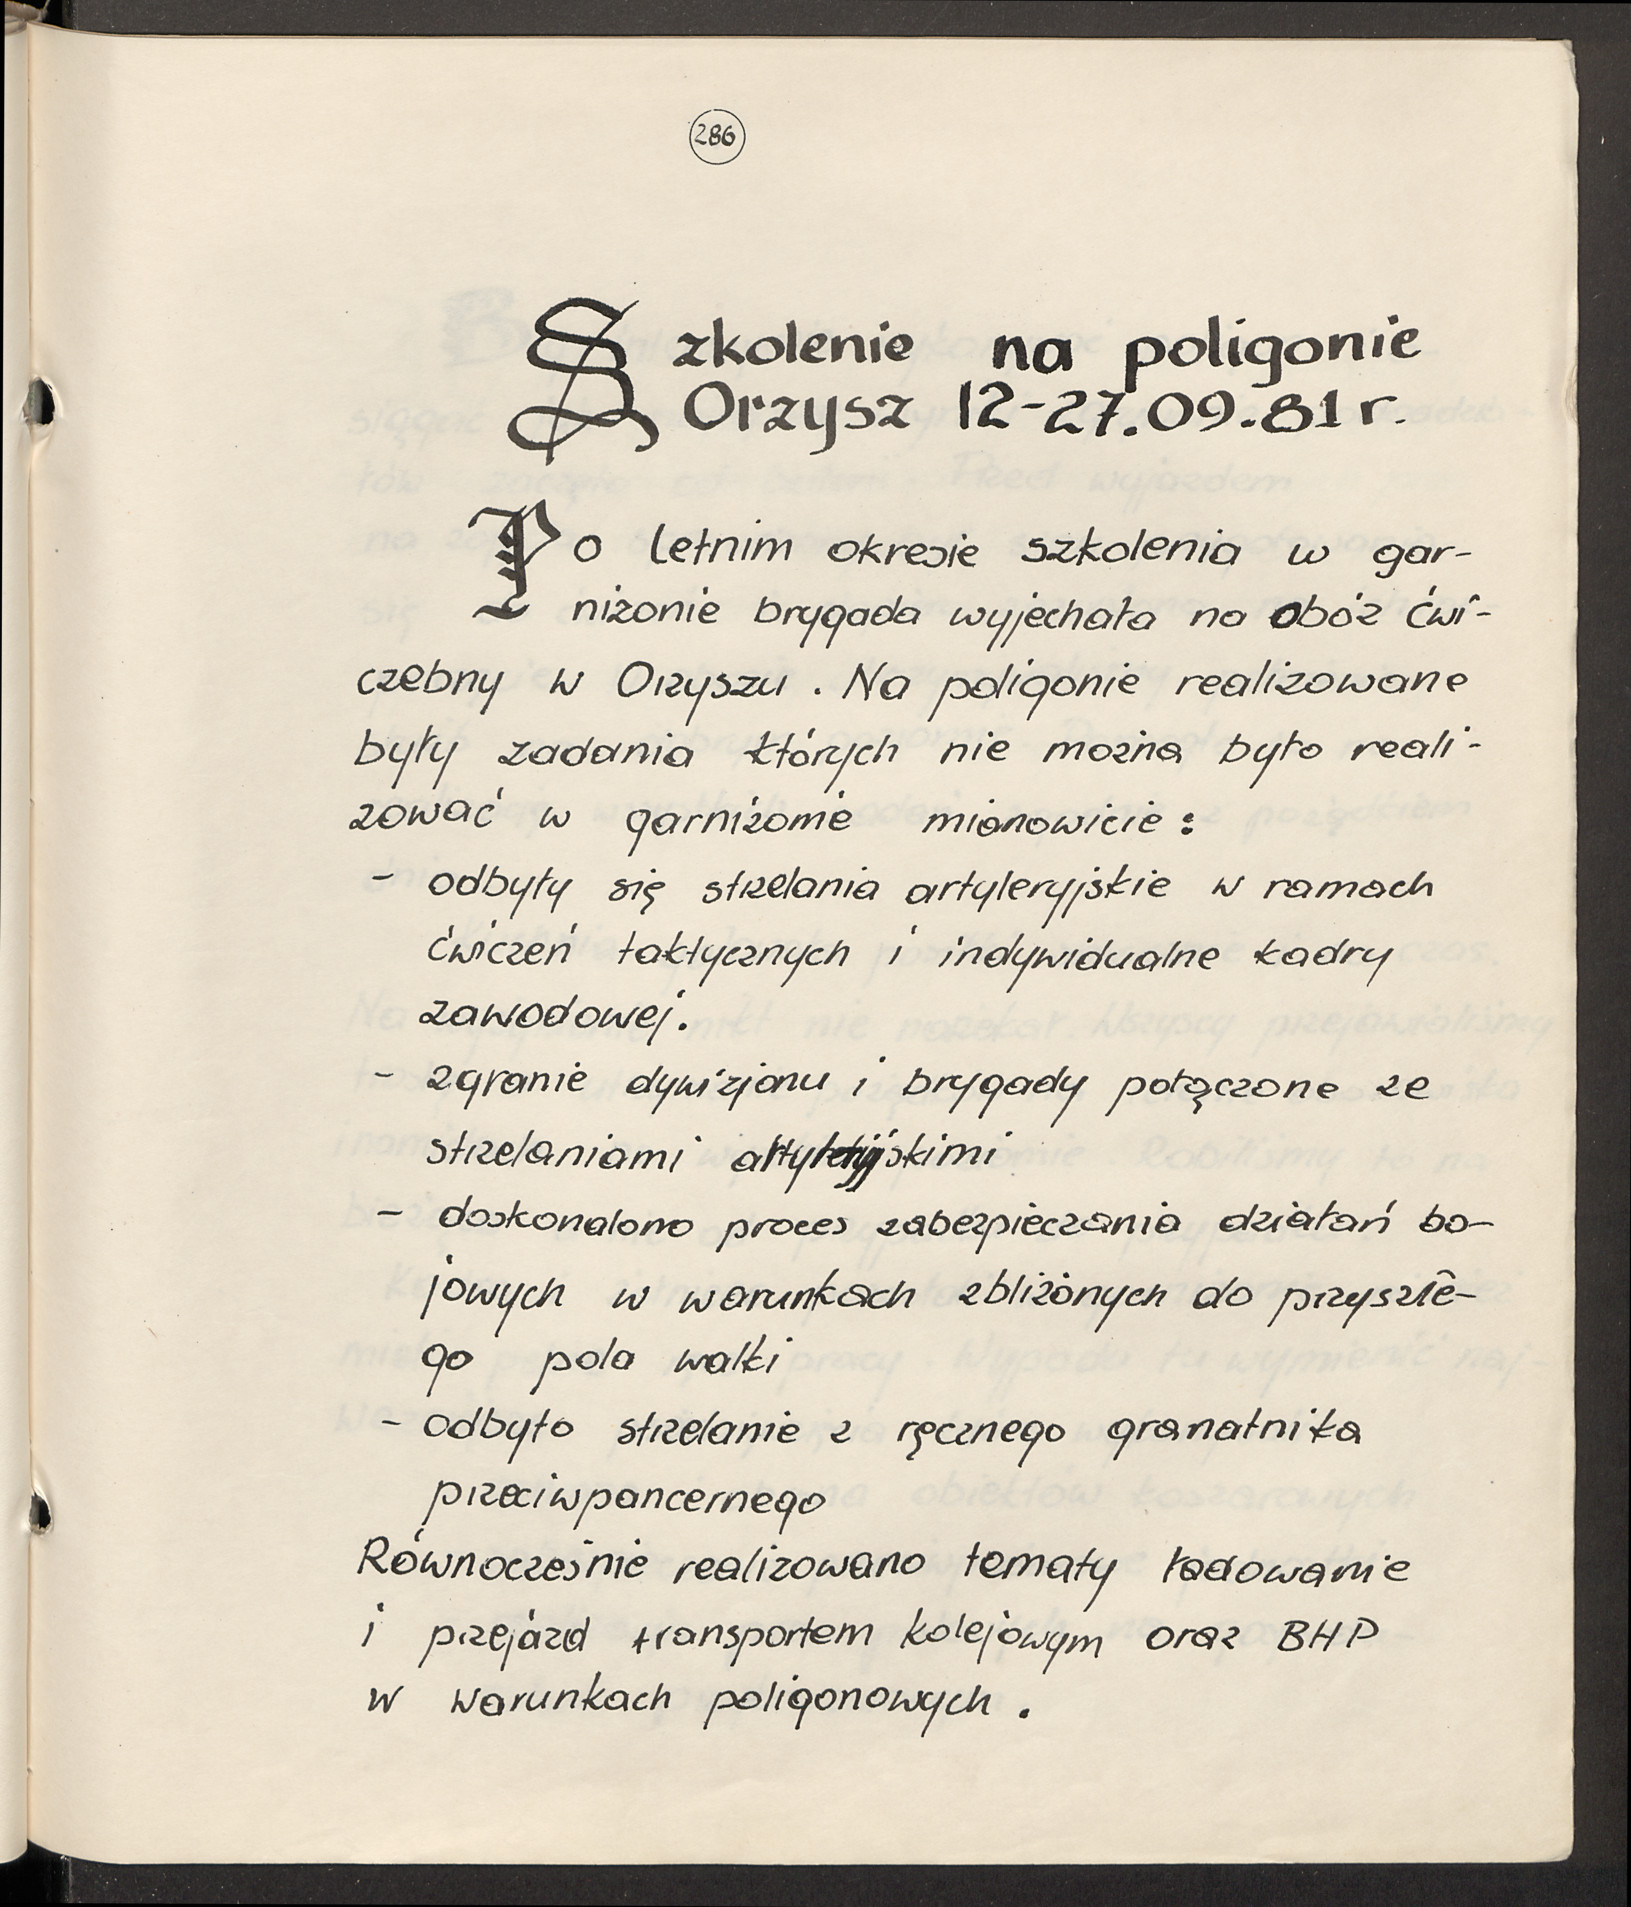 286
Szkolenie na poligonie
Orzysz 12-27.09.81 r.
Po letnim okresie szkolenia w gar-
nizonie brygada wyjechała na obóz ćwi-
czebny w Orzyszu. Na poligonie realizowane
były zadania których nie można było reali-
zować w garnizonie mianowicie:
- odbyły się strzelania artyleryjskie w ramach
ćwiczeń taktycznych i indywidualne kadry
zawodowej.
- zgranie dywizjonu i brygady połączone ze
strzelaniami artyleryjskimi
- doskonalono proces zabezpieczania działań bo-
jowych w warunkach zbliżonych do przyszłe-
go pola walki
- odbyto strzelanie z ręcznego granatnika
przeciwpancernego
Równocześnie realizowano tematy ładowanie
i przejazd transportem kolejowym oraz BHP
w warunkach poligonowych.